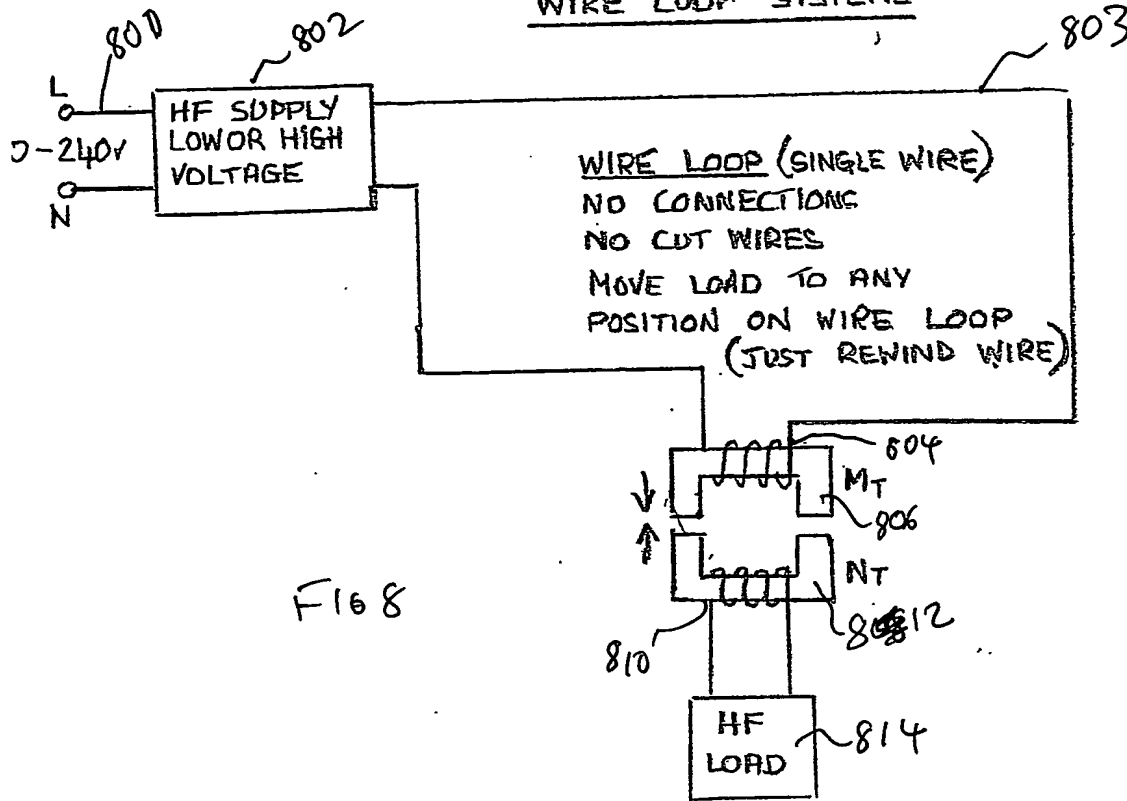 WIRE LOOP SYSTEMS
800
802
803
L
0-240v
N
HF SUPPLY
LOWOR HIGH
VOLTAGE
WIRE LOOP (SINGLE WIRE)
NO CONNECTIONS
NO CUT WIRES
MOVE LOAD TO ANY
POSITION ON WIRE LOOP
(JUST REWIND WIRE)
804
MT
806
NT
812
810
FIG 8
HF
LOAD
814